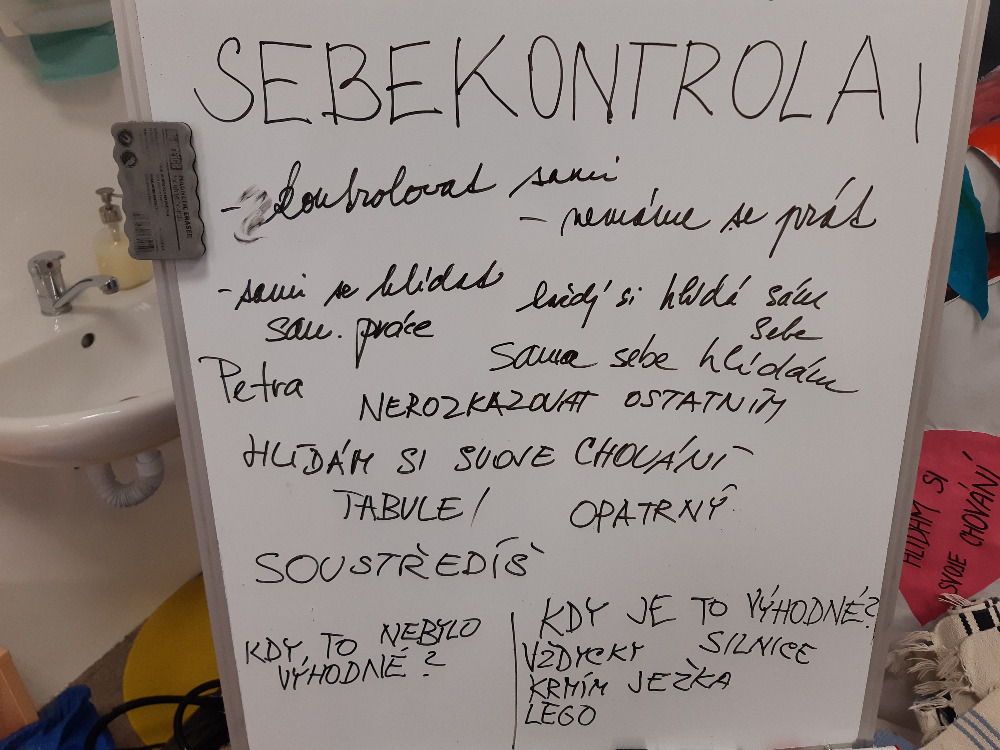 SEBEKONTROLA
MAGNETIC ERASER
- kontrolovat sami
- nemáme se prát
- sami se hlídat
každý si hlídá sám
sebe
sam. práce
Sama sebe hlídám
Petra
NEROZKAZOVAT OSTATNÍM
HLÍDÁM SI SVOJE CHOVÁNÍ
TABULE/
OPATRNÝ
SOUSTŘEDÍŠ
KDY TO NEBYLO
VÝHODNÉ?
KDY JE TO VÝHODNÉ?
VŽDYCKY SILNICE
KRMÍM JEŽKA
LEGO
HLÍDÁM SI
SVOJE CHOVÁNÍ